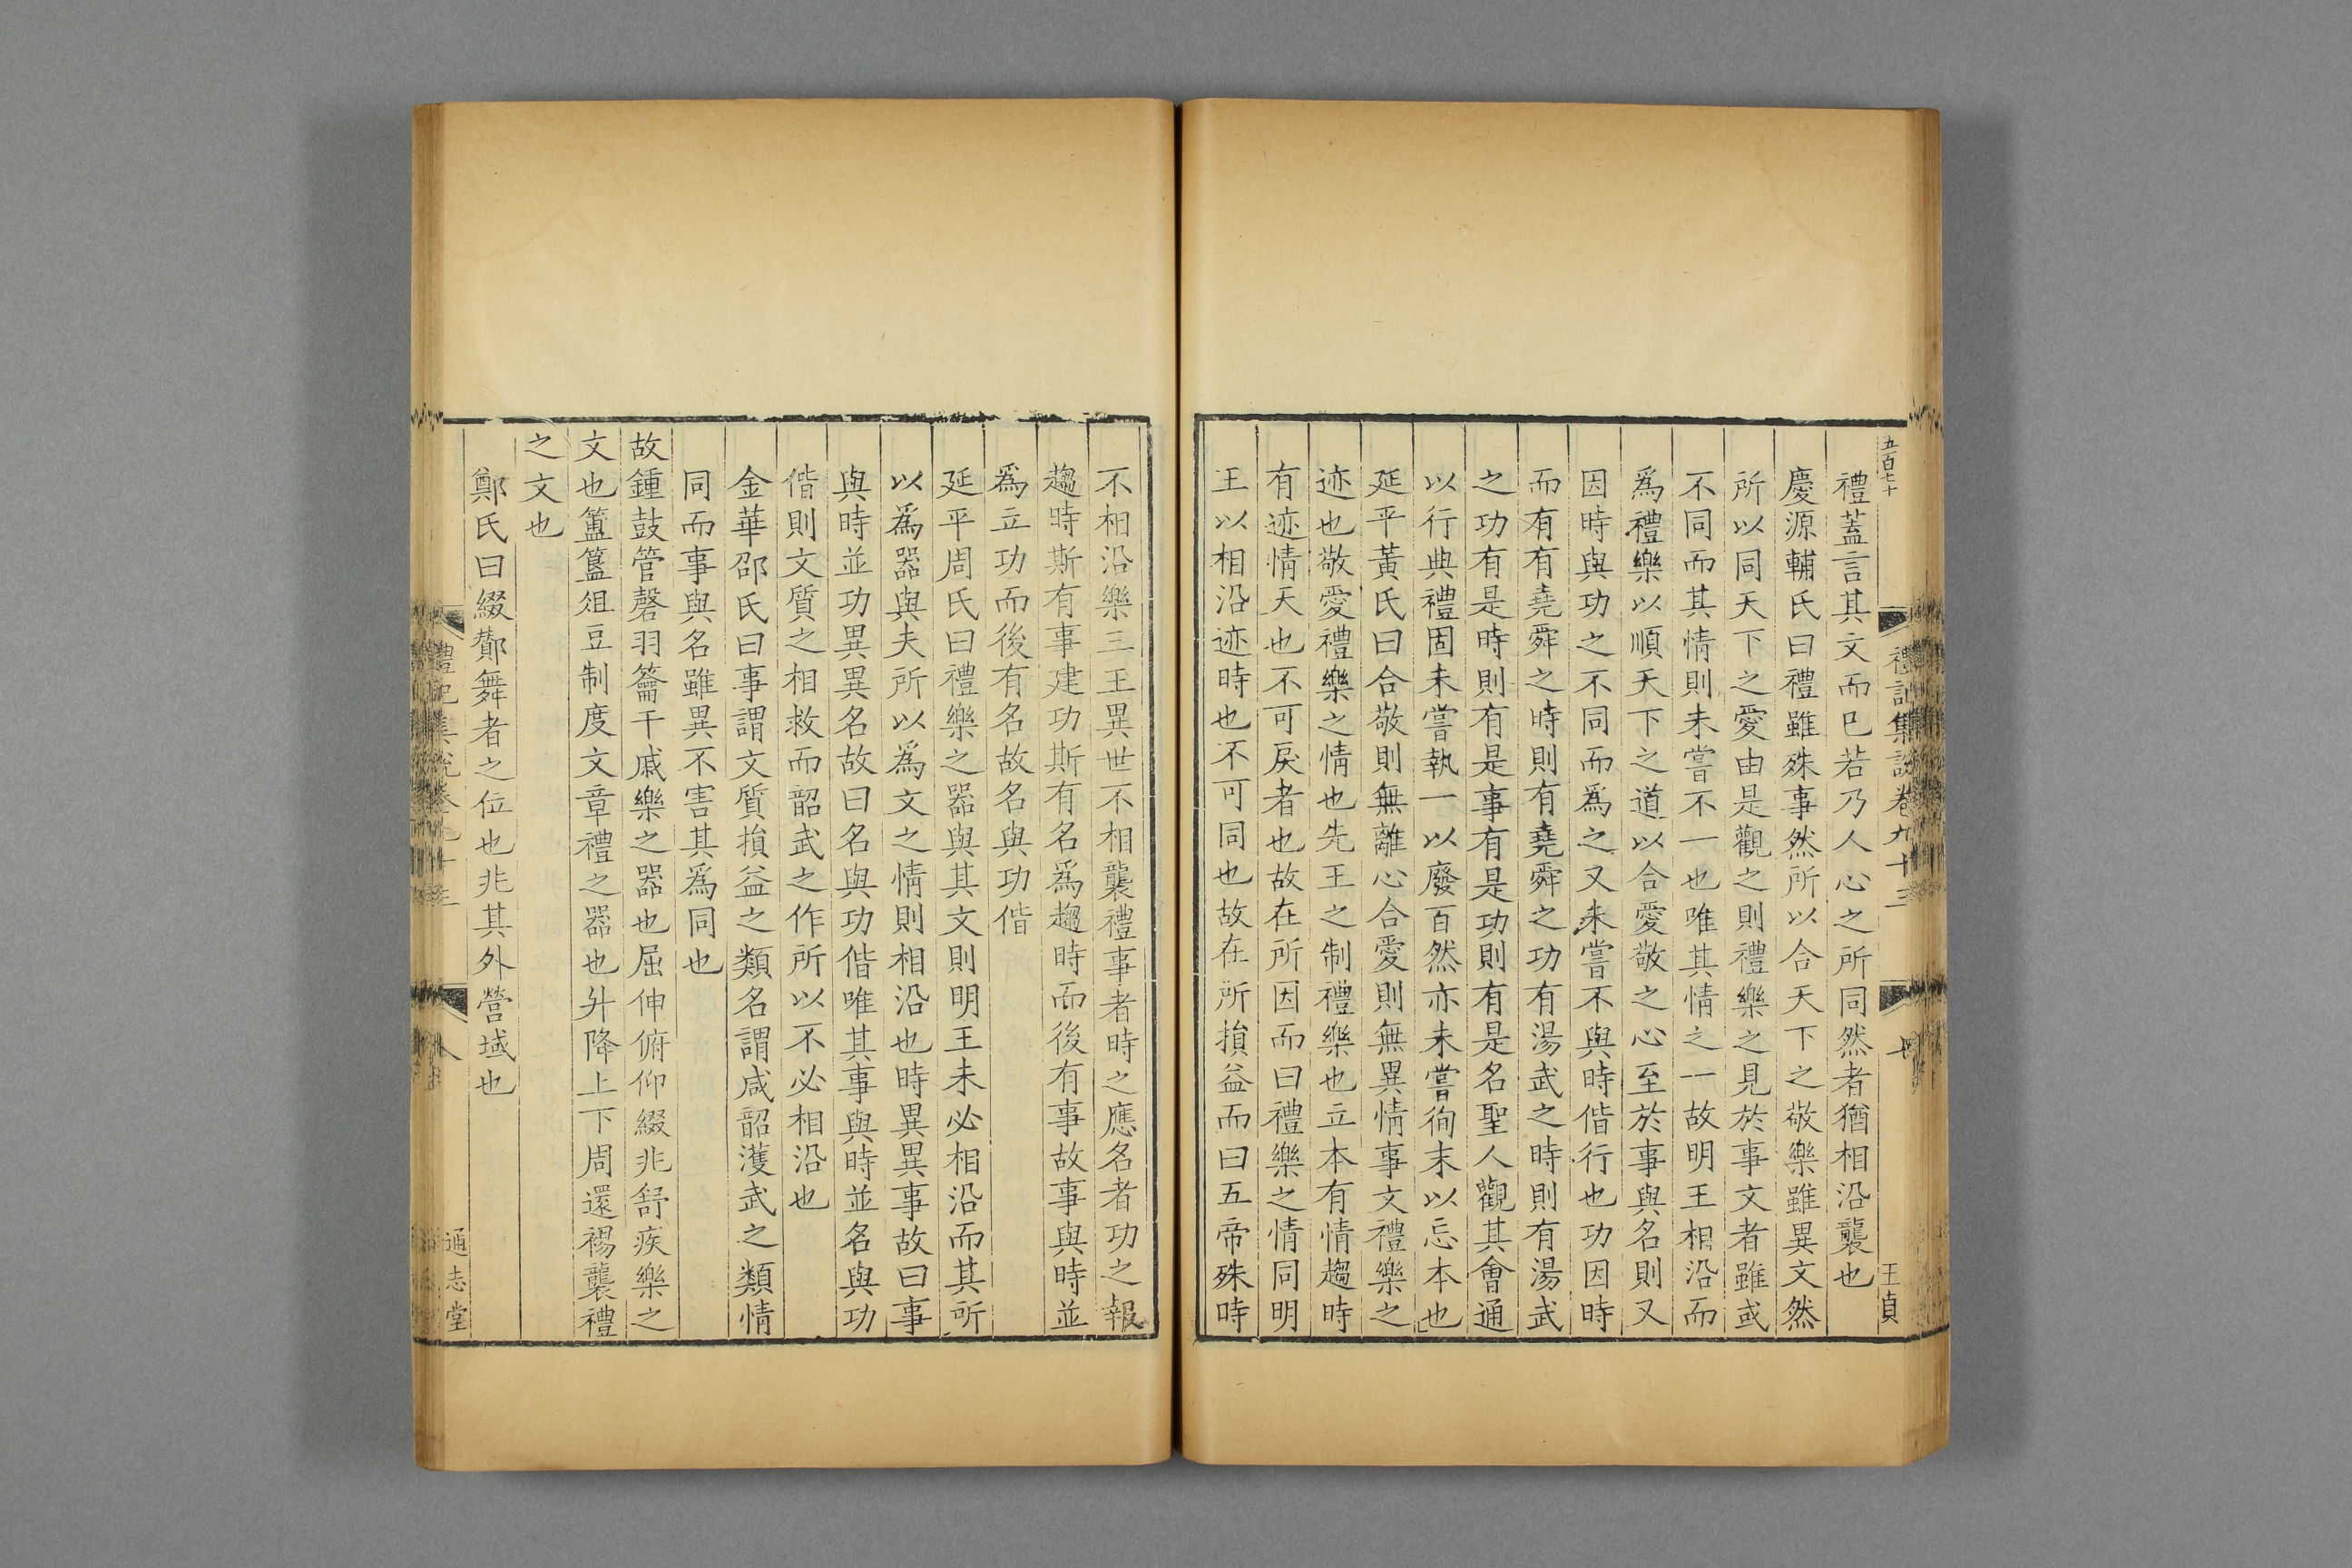 五百七十
禮記集說卷九十三
七
王貞
禮蓋言其文而已若乃人心之所同然者猶相沿襲也
慶源輔氏曰禮雖殊事然所以合天下之敬樂雖異文然
所以同天下之愛由是觀之則禮樂之見於事文者雖或
不同而其情則未嘗不一也唯其情之一故明王相沿而
爲禮樂以順天下之道以合愛敬之心至於事與名則又
因時與功之不同而爲之又未嘗不與時偕行也功因時
而有有堯舜之時則有堯舜之功有湯武之時則有湯武
之功有是時則有是事有是功則有是名聖人觀其會通
以行典禮固未嘗執一以廢百然亦未嘗徇末以忘本也
延平黃氏曰合敬則無離心合愛則無異情事文禮樂之
迹也敬愛禮樂之情也先王之制禮樂也立本有情趨時
有迹情天也不可戾者也故在所因而曰禮樂之情同明
王以相沿迹時也不可同也故在所損益而曰五帝殊時
不相沿樂三王異世不相襲禮事者時之應名者功之報
趨時斯有事建功斯有名爲趨時而後有事故事與時並
爲立功而後有名故名與功偕
延平周氏曰禮樂之器與其文則明王未必相沿而其所
以爲器與夫所以爲文之情則相沿也時異異事故曰事
與時並功異異名故曰名與功偕唯其事與時並名與功
偕則文質之相救而韶武之作所以不必相沿也
金華邵氏曰事謂文質損益之類名謂咸韶濩武之類情
同而事與名雖異不害其爲同也
故鍾鼓管磬羽籥干戚樂之器也屈伸俯仰綴兆舒疾樂之
文也簠簋俎豆制度文章禮之器也升降上下周還裼襲禮
之文也
鄭氏曰綴酇舞者之位也兆其外營域也
八
通志堂